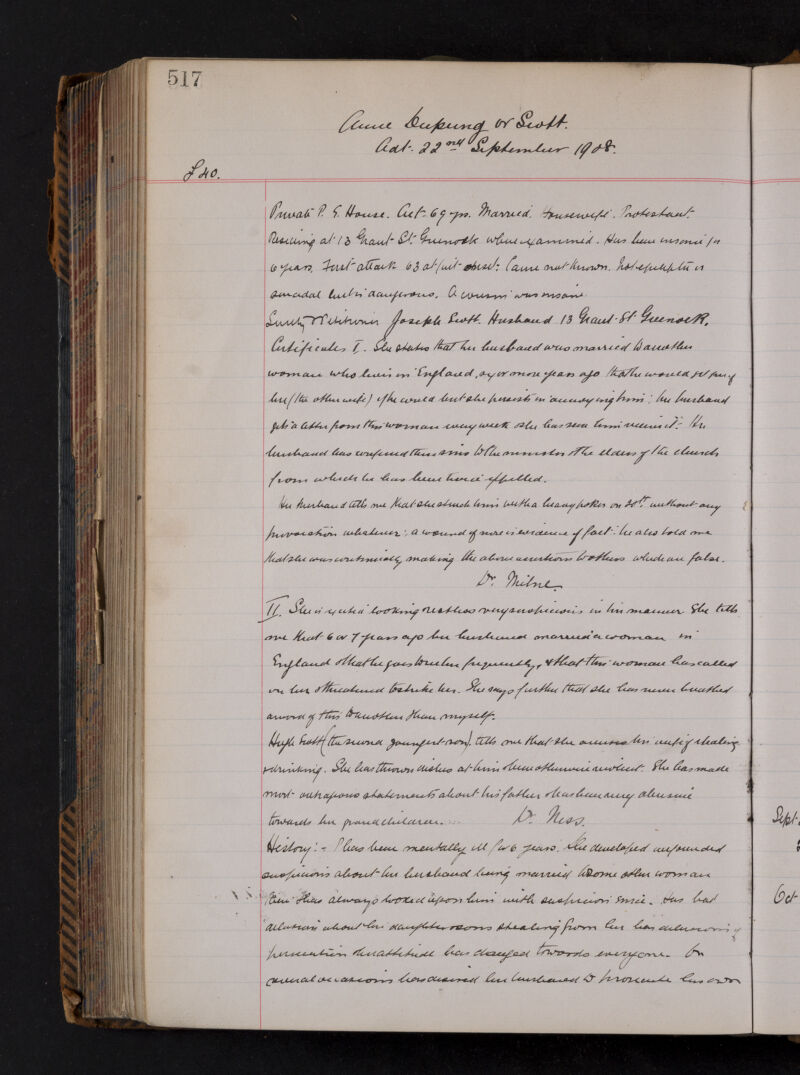 517
Anne Dupeng or Scott.
Adt. 22nd September 1908.
£40.
Private P. G. House. Aet. 69 yrs. Married. Housewife. Protestant.
Residing at 13 Grant St. Greenock where examined. Has been insane for
6 years. First attack 63 at first onset. Cause not known. Not epileptic or
suicidal but is dangerous. A cousin was insane.
Petitioner Joseph Scott. Husband 13 Grant St Greenock.
Certificates I. She states that her husband was married to another
woman who lives in England, six or more years ago that he would get rid of
her (the other wife) if he could but she persists in annoying him; her husband
gets a letter from this woman every week & she has seen him receive it. Her
husband has confessed these sins to the minister & the elders of the church
from which he has been twice expelled.
Her husband tells me that she struck him with a heavy poker on 20th without any
provocation whatever; a wound of nose is evidence of fact. he also told me
that she was continually making the above assertions to others which are false.
Dr. Milne.
II. She is excited looking restless very suspicious in her manner She tells
me that 6 or 7 years ago her husband married a woman in
England & that he goes to see her frequently, & that this woman has called
on her & threatened to strike her. She says further that she has never breathed
a word of this to another than myself.
Hugh Scott (the second youngest son) tells me that she accuses his wife of stealing
& drinking. She has thrown dishes at him & been otherwise violent. She has made
most outrageous statements about his father & has been very abusive
towards her grandchildren. Dr. Ness.
History:- P has been mentally ill for 6 years. She developed unfounded
suspicions about her husband being married to some other woman
& has always looked upon him with suspicion since. Has had
delusions about her daughters & sons stealing from her has delusions of
persecution & her attitude has changed towards everyone. On
several occasions has desired her husband to prosecute his own
Sept.
Oct